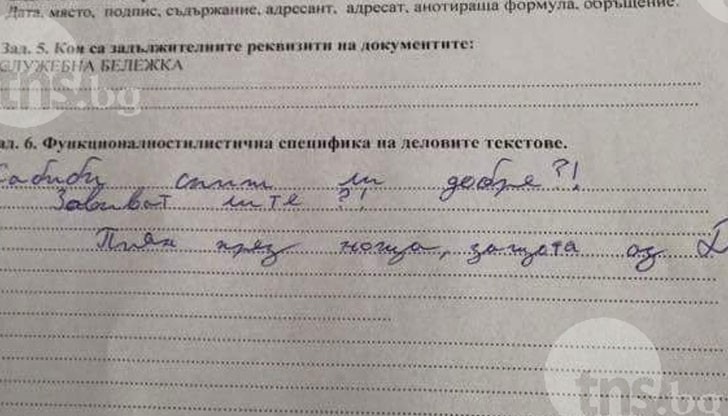 Дата, място, подпис, съдържание, адресант, адресат, анотираща формула, обръщение.
Зад. 5. Кои са задължителните реквизити на документите:
СЛУЖЕБНА БЕЛЕЖКА
tns.bg
ад. 6. Функционалностилистична специфика на деловите текстове.
Хабиби спиш ли добре?!
Завиват ли те ?!
Пиян през нощта, защота аз
tns.bg